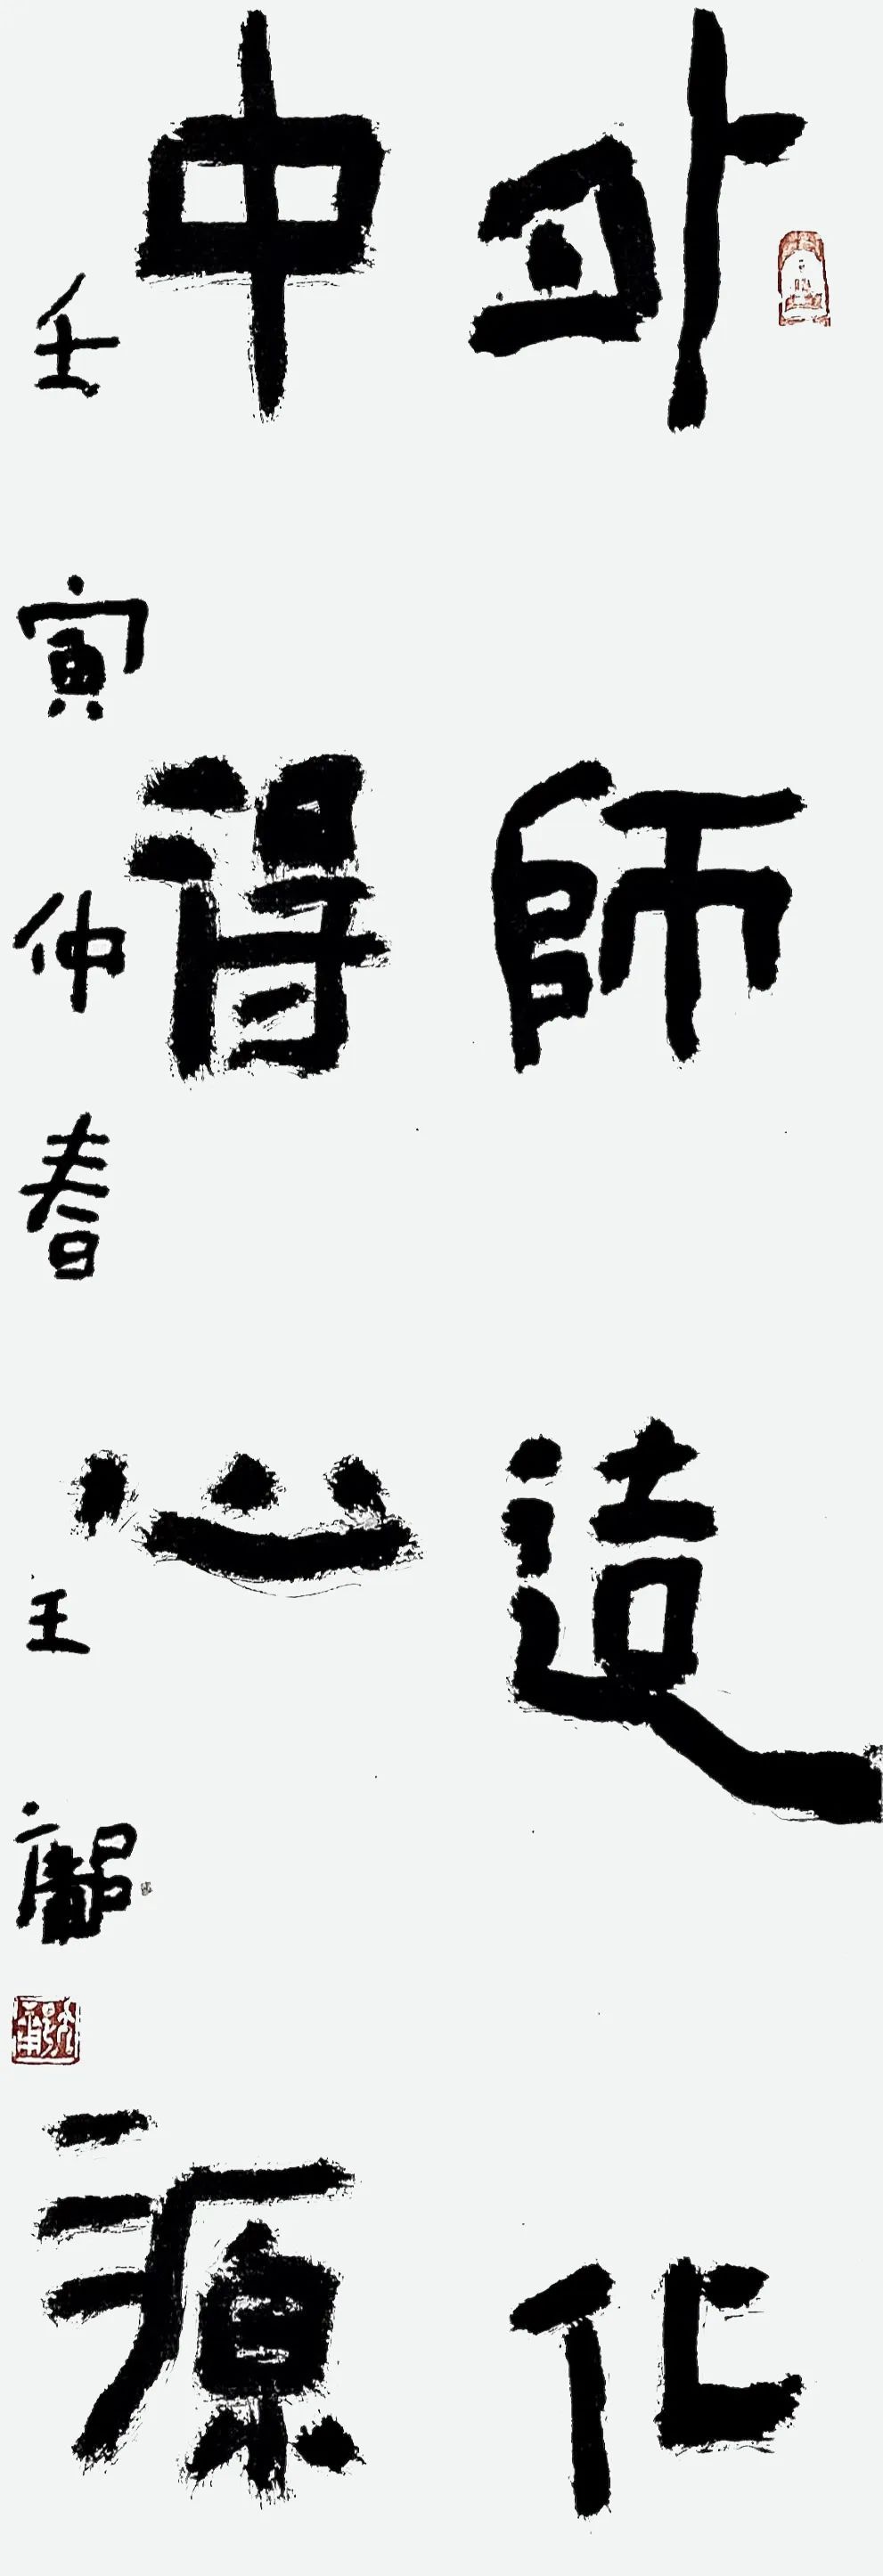 外師造化
中得心源
壬寅仲春王